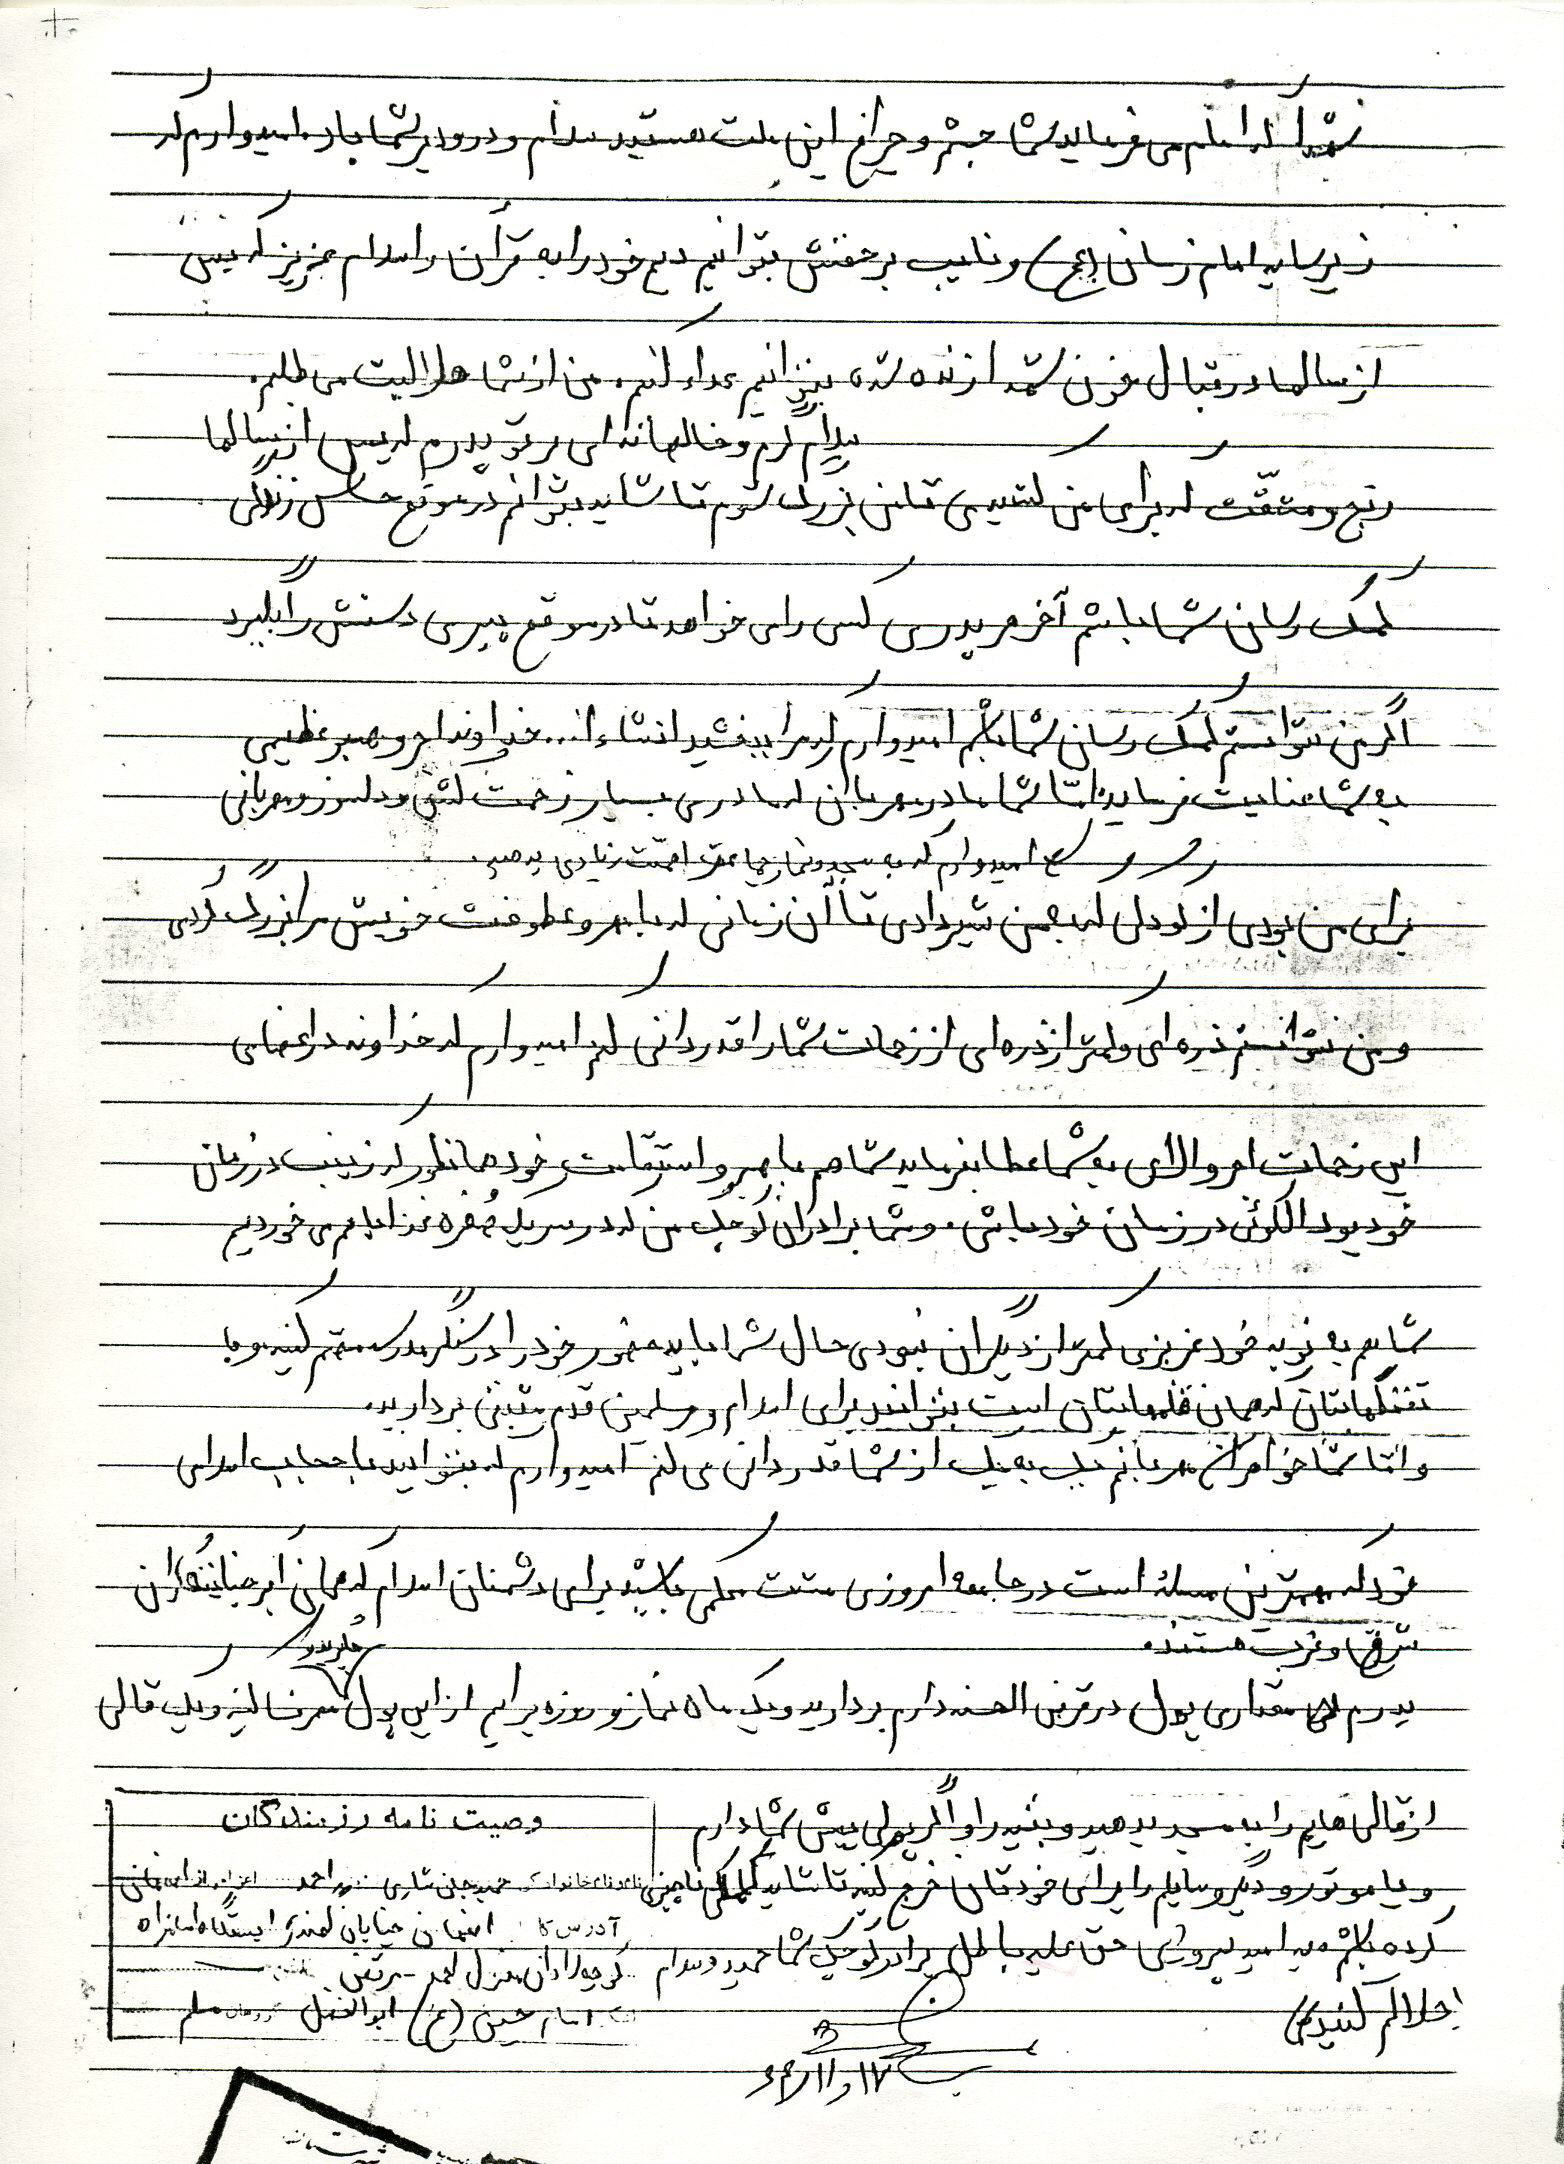 شهدا که امام می فرماید شما چشم و چراغ این ملت هستید سلام و درود بر شما باد. امیدوارم که
زیر سایه امام زمان (عج) و نایب بر حقش بتوانیم دین خود را به قرآن و اسلام عزیز که پس
از سالها در قبال خون شهدا زنده شده بتوانیم عداء کنیم. من از شما حلالیت می طلبم.
سلام گرم و خالصانه ای بر تو پدرم که پس از سالها
رنج و مشقّت که برای من کشیدی تا من بزرگ شوم تا شاید بتوانم در موقع حساس زندگی
کمک رسان شما باشم آخر هر پدری کسی را می خواهد تا در موقع پیری دستش را بگیرد
اگر من نتوانستم کمک رسان شما باشم امیدوارم که مرا ببخشید انشاءا... خداوند اجر و صبر عظیمی
به شما عنایت فرماید. امّا شما مادر مهربان که مادری بسیار زحمت کش و دلسوز و مهربانی
امیدوارم که به مسجد و نماز جماعت اهمّیت زیادی بدهید.
برای من بودی از کودکی که به من شیر دادی تا آن زمانی که با مهر و عطوفت خویش مرا بزرگ کردی
و من نتوانستم ذره ای و کمتر از ذره ای از زحمات شما را قدردانی کنم امیدوارم که خداوند در عوض
این زحمات اجر والائی به شما عطا بفرماید شما هم با صبر و استقامت خود همانطور که زینب در زمان
خود بود الگوئی در زمان خود باشی. و شما برادران کوچک من که در سر یک سفره غذا با هم می خوردیم
شما هم به نوبه خود عزیزی کمتر از دیگران نبودی حال شما باید حضور خود را در سنگر مدرسه محکم کنید و با
تفنگهایتان که همان قلمهایتان است بتوانید برای اسلام و مسلمین قدم مثبتی بردارید.
و امّا شما خواهران مهربانم یک به یک از شما قدردانی می کنم امیدوارم که بتوانید با حجاب اسلامی
خود که مهمترین مسئله است در جامعه امروزی مشت محکمی باشید برای دشمنان اسلام که همان ابرجنایتکاران
شرق و غرب هستند.
بگیرید و
پدرم من مقداری پول در قرض الحسنه دارم بردارید و یک ماه نماز و روزه برایم از این پول صرف کنید و یک قالی
از قالی هایم را به مسجد بدهید و بقیه را و اگر پولی پیش شما دارم
و یا موتور و دیگر وسایلم را برای خودتان خرج کنید تا شاید کمکی ناچیزی
کرده باشم. به امید پیروزی حق علیه باطل برادر کوچک شما حمید والسلام
حلالم کنید
۱۷ر۱۱ر
وصیت نامه رزمندگان
نام و نام خانوادگی حمید جان نثاری احمد اعزامی از اصفهان
آدرس کامل اصفهان خیابان ایستگاه
کوچه منزل احمد
امام حسین (ع) ابوالفضل مسلم